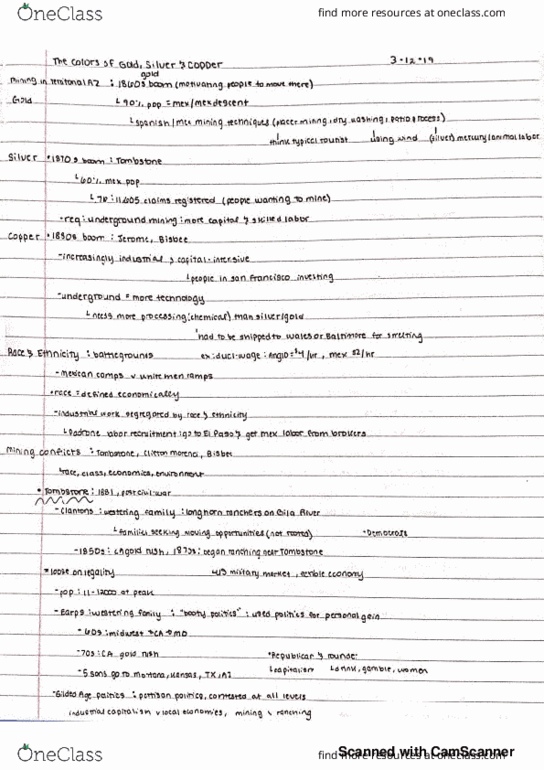 OneClass
find more resources at oneclass.com
The Colors of Gold, Silver & Copper 3-12-19
gold
Mining in Territorial AZ : 1860s boom (motivating people to move there)
Gold ↳ 90% pop = mex/mex descent
↳ spanish/mex mining techniques (placer mining, dry washing, patio process)
think typical tourist using wind (silver) mercury/animal labor
Silver • 1870s boom : Tombstone
↳ 60% mex pop
↳ 78 : 11,605 claims registered (people wanting to mine)
• req : underground mining : more capital & skilled labor
Copper • 1880s boom : Jerome, Bisbee
- increasingly industrial & capital-intensive
↳ people in san Francisco investing
- underground = more technology
↳ need more processing (chemical) than silver/gold
had to be shipped to wales or Baltimore for smelting
Race & Ethnicity : battlegrounds ex: dual-wage : Anglo $4/hr, mex $2/hr
- mexican camps v white men camps
• race = defined economically
- industrial work segregated by race & ethnicity
↳ Padrone labor recruitment : go to El Paso & get mex labor from brokers
Mining conflicts : Tombstone, Clifton morenci, Bisbee
↳ race, class, economics, environment
• Tombstone : 1881, post civil-war
- Clantons : westering family : longhorn ranchers on Gila River
↳ families seeking moving opportunities (not rooted) • Democrats
- 1850s : CA gold rush, 1873s : began ranching near Tombstone
• loose on legality ↳ US military market, terrible economy
- pop : 11-12000 at peak
- Earps : westering family : "booty politics" : used politics for personal gain
- 60s : midwest → CA → MO
- 70s : CA gold rush • Republican & rounder
- 5 sons go to montana, kansas, TX, AZ ↳ capitalism ↳ drink, gamble, women
- Gilded Age politics : partisan politics, contested at all levels
industrial capitalism v local economies, mining v ranching
OneClass
find more resources at oneclass.com
Scanned with CamScanner